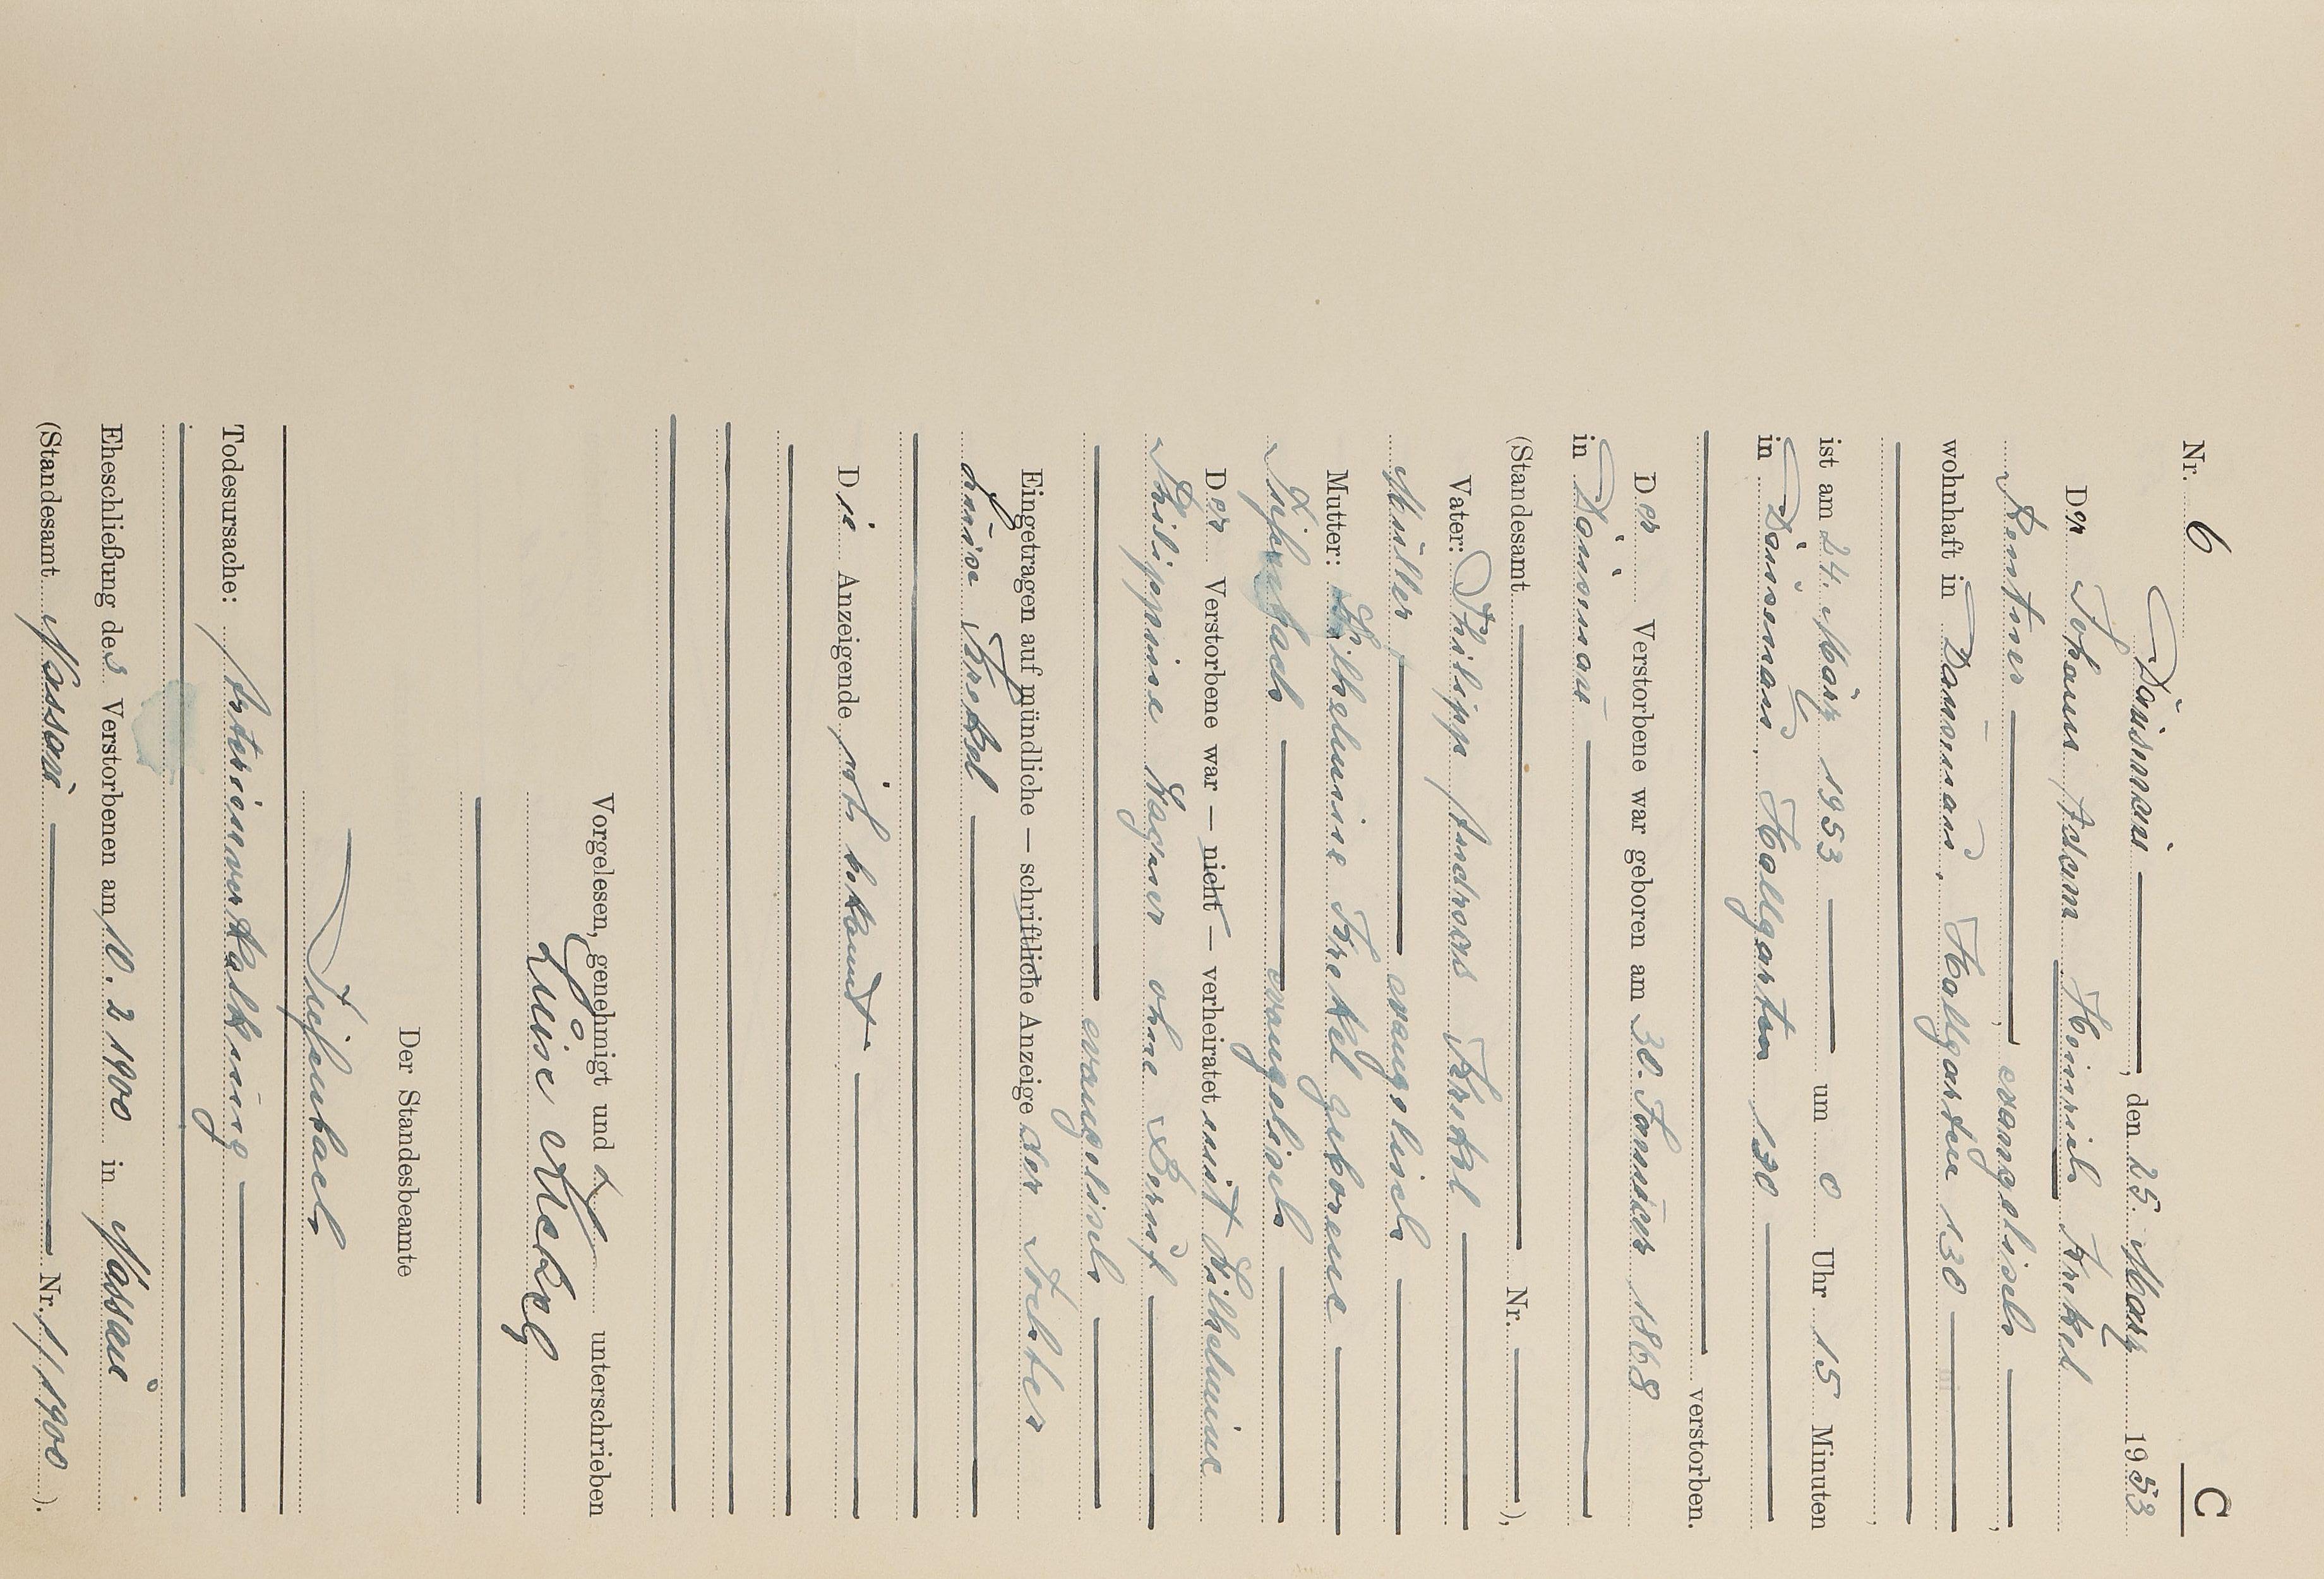 Nr. 6 C
Dausenau, den 25. März 1953
Der Johann Adam Heinrich Krekel
Rentner, evangelisch,
wohnhaft in Dausenau, Hallgarten 130
,
ist am 24. März 1953 um 0 Uhr 15 Minuten
in Dausenau, Hallgarten 130
verstorben.
Der Verstorbene war geboren am 30. Januar 1868
in Dausenau
(Standesamt Nr. ),
Vater: Philipp Andreas Krekel
Müller, evangelisch
Mutter: Wilhelmine Krekel geborene
evangelisch
Der Verstorbene war — nicht — verheiratet mit Wilhelmine
Philippine Wagner ohne Beruf
evangelisch
Eingetragen auf mündliche — schriftliche Anzeige der Tochter
Luise Krekel
Die Anzeigende ist bekannt.
Vorgelesen, genehmigt und unterschrieben
Luise Krekel
Der Standesbeamte
Todesursache: Arterienverkalkung
Eheschließung des Verstorbenen am 10. 2 1900 in Nassau
(Standesamt Nassau Nr. 1/1900 ).